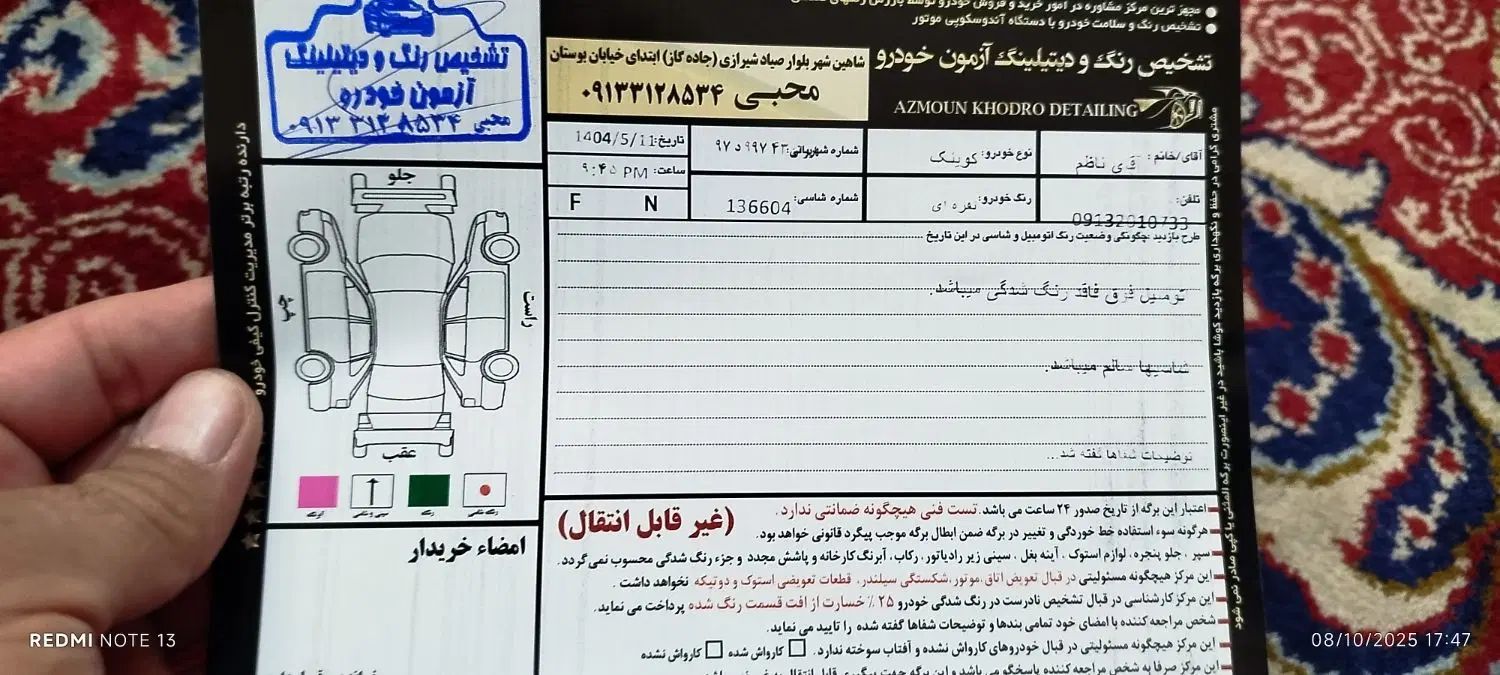 مجهز ترین مرکز مشاوره در امور خرید و فروش خودرو توسط
تشخیص رنگ و سلامت خودرو با دستگاه آندوسکوپی موتور
تشخیص رنگ و دیتیلینگ آزمون خودرو
AZMOUN KHODRO DETAILING
شاهین شهر بلوار صیاد شیرازی (جاده گاز) ابتدای خیابان بوستان
محبی ۰۹۱۳۳۱۲۸۵۳۴
تشخیص رنگ و دیتیلینگ
آزمون خودرو
محبی ۰۹۱۳ ۳۱۲ ۸۵۳۴
آقای/خانم: قای ناظم
نوع خودرو: کوینک
شماره شهربانی: ۹۷ د ۹۹۷ ۴۳
تاریخ: 1404/5/11
ساعت: ۹:۴۵ PM
تلفن: 09132010733
رنگ خودرو: نقره ای
شماره شاسی: 136604
F N
طرح بازدید چگونگی وضعیت رنگ اتومبیل و شاسی در این تاریخ
تومبیل فوق فاقد رنگ شدگی میباشد.
شاسیها سالم میباشد.
توضیحات شفاها گفته شد...
جلو
چپ
راست
عقب
امضاء خریدار
اعتبار این برگه از تاریخ صدور ۲۴ ساعت می باشد. تست فنی هیچگونه ضمانتی ندارد.
(غیر قابل انتقال)
هرگونه سوء استفاده خط خوردگی و تغییر در برگه ضمن ابطال برگه موجب پیگرد قانونی خواهد بود.
سپر، جلو پنجره، لوازم استوک، آینه بغل، سینی زیر رادیاتور، رکاب، آبرنگ کارخانه و پاشش مجدد و جزء رنگ شدگی محسوب نمی گردد.
این مرکز هیچگونه مسئولیتی در قبال تعویض اتاق، موتور، شکستگی سیلندر، قطعات تعویضی استوک و دوتیکه نخواهد داشت.
این مرکز کارشناسی در قبال تشخیص نادرست در رنگ شدگی خودرو ۲۵٪ خسارت از افت قسمت رنگ شده پرداخت می نماید.
شخص مراجعه کننده با امضای خود تمامی بندها و توضیحات شفاها گفته شده را تایید می نماید.
این مرکز هیچگونه مسئولیتی در قبال خودروهای کارواش نشده و آفتاب سوخته ندارد. کارواش شده کارواش نشده
این مرکز صرفا به شخص مراجعه کننده پاسخگو می باشد و این برگه جهت پیگیری قابل انتقال به غیر نمی باشد
دارنده رتبه برتر مدیریت کنترل کیفی خودرو
مشتری گرامی در حفظ و نگهداری برگه بازدید کوشا باشید در غیر اینصورت برگه المثنی یا کپی صادر نمی شود
REDMI NOTE 13
08/10/2025 17:47